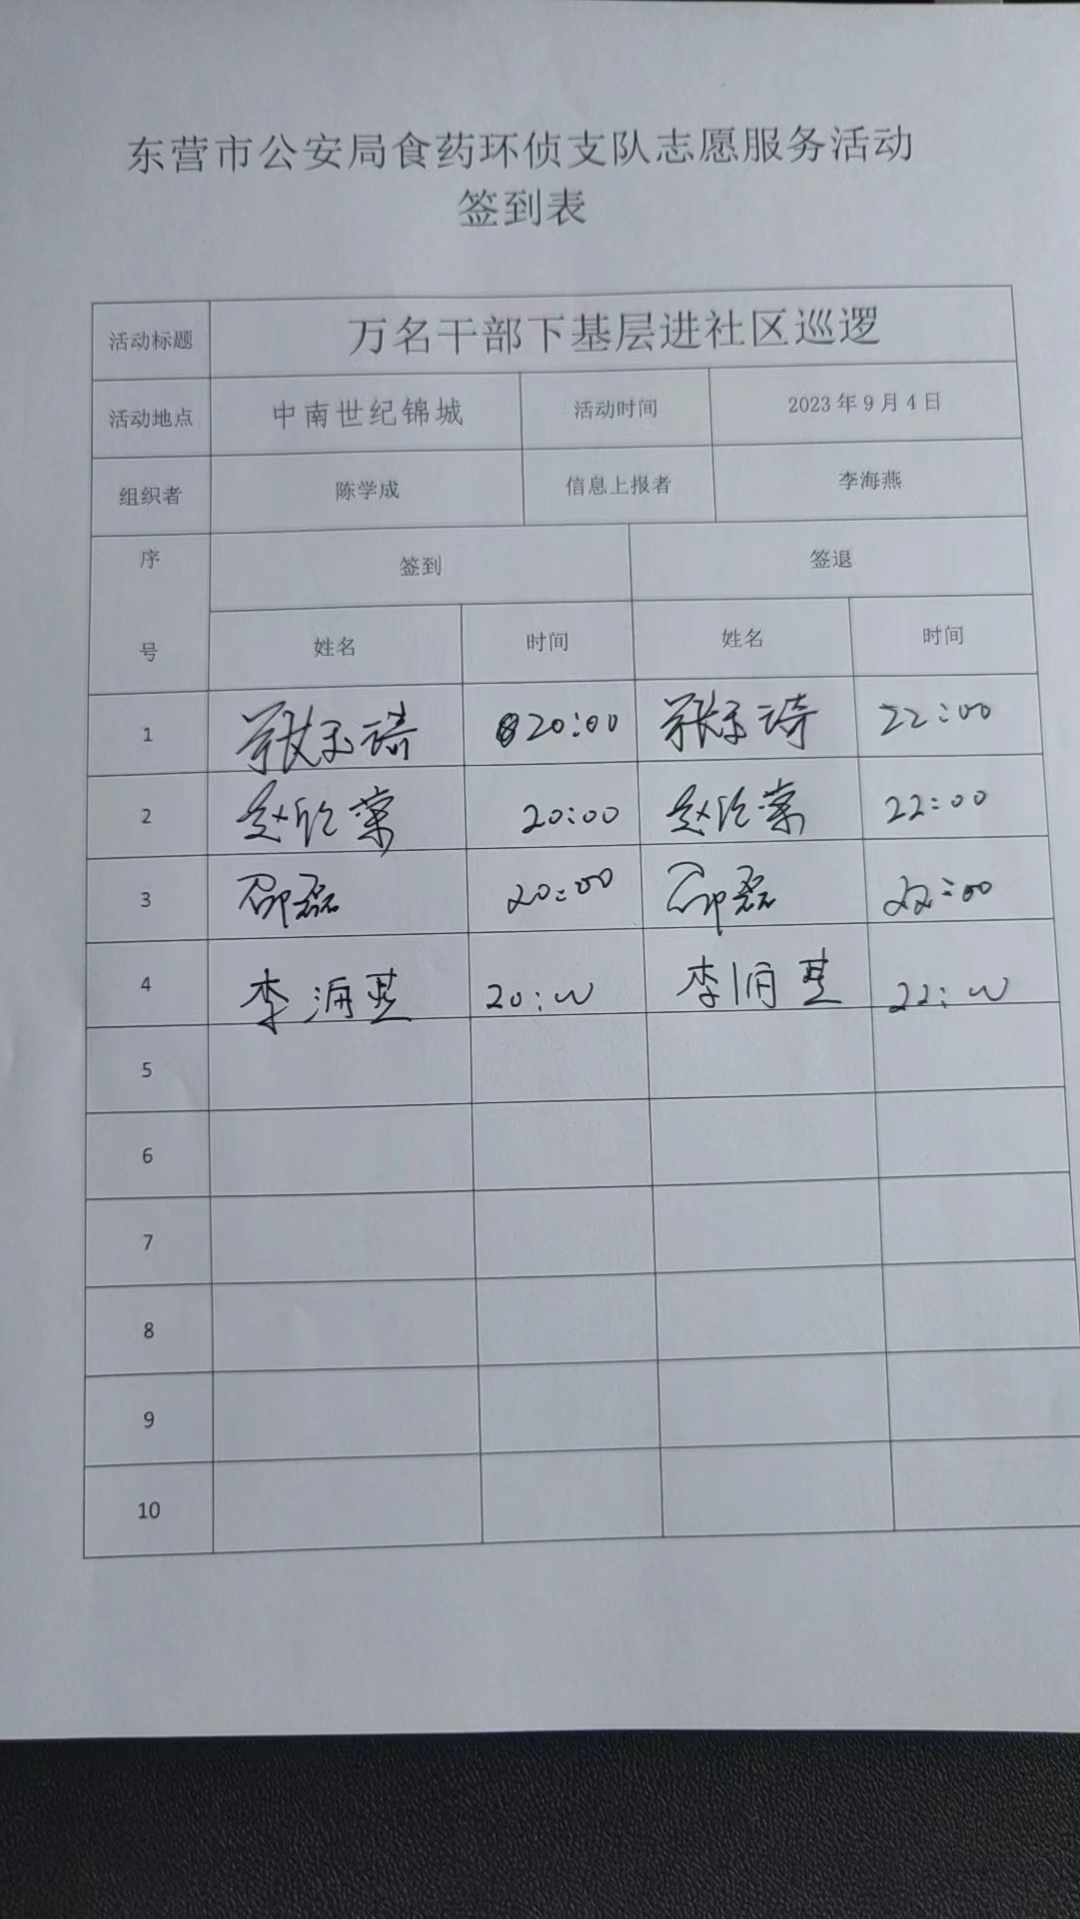 东营市公安局食药环侦支队志愿服务活动
签到表
活动标题 万名干部下基层进社区巡逻
活动地点 中南世纪锦城 活动时间 2023年9月4日
组织者 陈学成 信息上报者 李海燕
序号 签到 签退
姓名 时间 姓名 时间
1 20:00 22:00
2 赵 20:00 赵 22:00
3 邵磊 20:00 邵磊 22:00
4 李 20:00 李 22:00
5
6
7
8
9
10